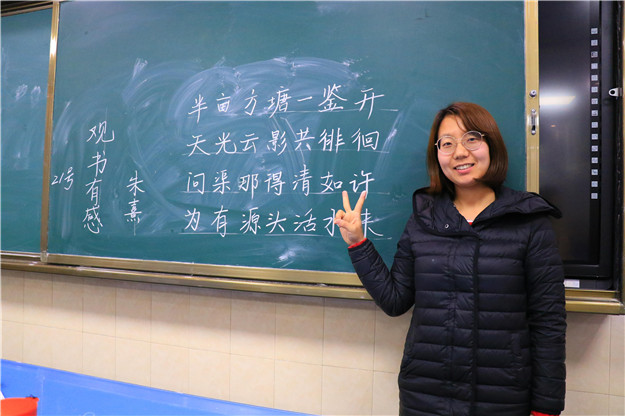 21号
观书有感
朱熹
半亩方塘一鉴开
天光云影共徘徊
问渠那得清如许
为有源头活水来